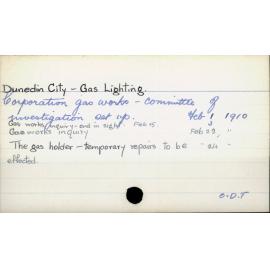 Dunedin City - Gas Lighting.
Corporation gas works - committee of
investigation set up. Feb 1 1910
Gas works inquiry - end in sight Feb 15.
Gas works inquiry Feb 22, "
The gas holder - temporary repairs to be " 24 "
effected.
O.D.T